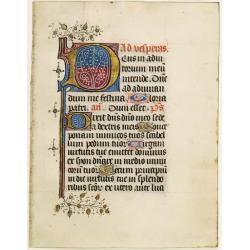 Ad vesperas.
Deus in adiu
torium meu
intende. Dñe
ad adiuuan
dum me festina. Gloria
patri. an̄. Dum esset. ps.
Dixit dñs dño meo sede
a dextris meis
nam inimicos tuos scabel
lum pedum tuoꝝ Virgam
uirtutis tue emittet dominus
ex syon dñare in medio inimi
coꝝ tuoꝝ Tecum principium
in die uirtutis tue in splendo
ribus scōꝝ ex utero ante luci